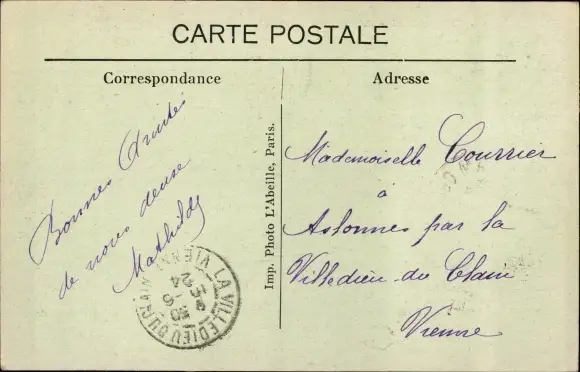 CARTE POSTALE
Correspondance
Adresse
Bonnes Amitiés
de nous deux
Mathilde
Imp. Photo L'Abeille, Paris.
Mademoiselle Courrier
à
Aslonnes par la
Villedieu du Clain
Vienne
LA VILLEDIEU DU CLAIN
VIENNE
24